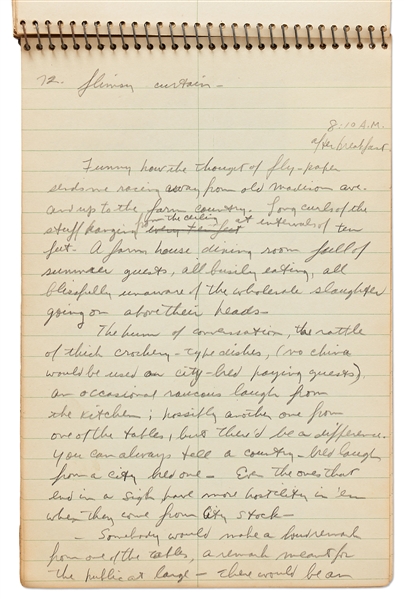 72. flimsy curtain -
8:10 A.M.
after breakfast.
Funny how the thought of fly-paper
sends me racing away from old Madison ave.
and up to the farm country. Long curls of the
stuff hanging from the ceiling at intervals of ten
every ten feet
feet. A farm house dining room full of
summer guests, all busily eating, all
blissfully unaware of the wholesale slaughter
going on above their heads -
The hum of conversation, the rattle
of thick crockery-type dishes, (no china
would be used on city-bred paying guests)
an occasional raucous laugh from
the kitchen; possibly another one from
one of the tables, but there'd be a difference.
You can always tell a country-bred laugh
from a city bred one - Even the ones that
end in a sigh have more hostility in 'em
when they come from city stock -
- Somebody would make a loud remark
from one of the tables, a remark meant for
the public at large - there would be an